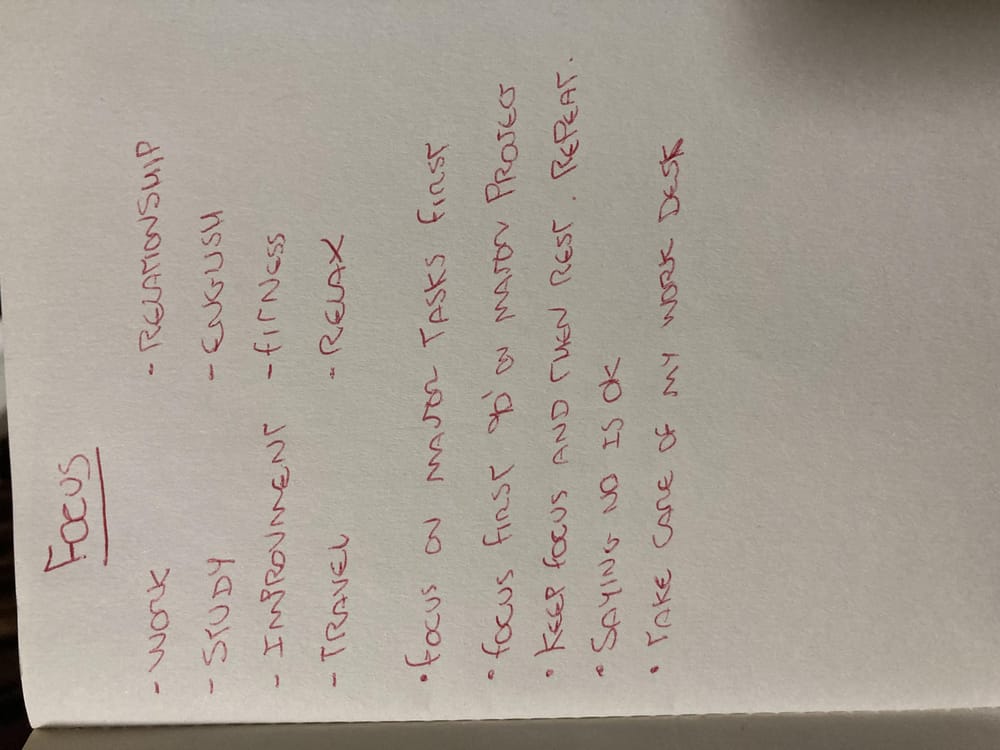 FOCUS
- WORK - RELATIONSHIP
- STUDY - ENGLISH
- IMPROVMENT - FITNESS
- TRAVEL - RELAX
• FOCUS ON MAJOR TASKS FIRST
• FOCUS FIRST 90' ON MAJOR PROJECT
• KEEP FOCUS AND THEN REST. REPEAT.
• SAYING NO IS OK
• TAKE CARE OF MY WORK DESK